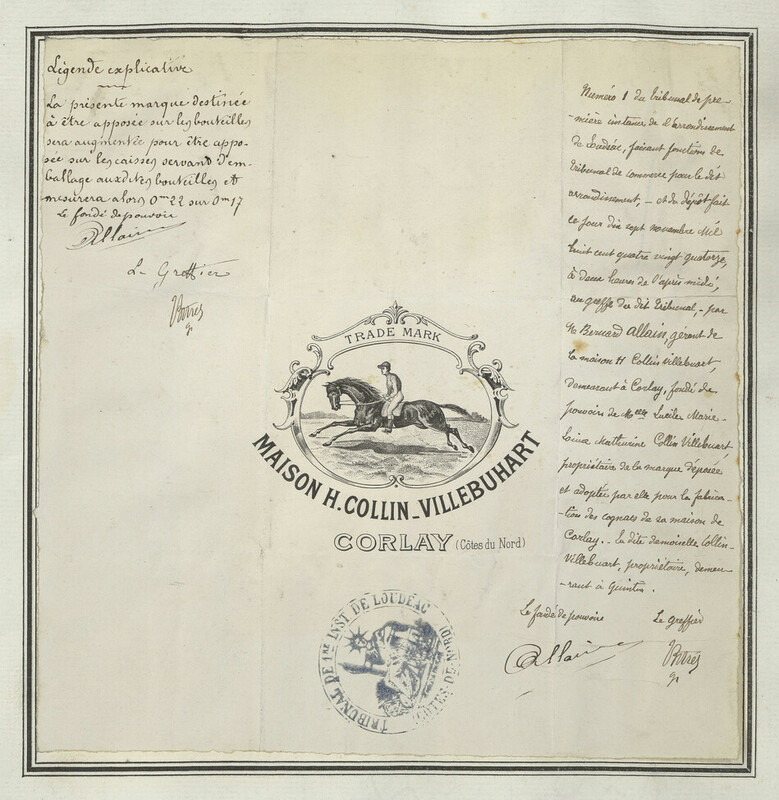 Légende explicative
La présente marque destinée
à être apposée sur les bouteilles
sera augmentée pour être appo-
sée sur les caisses servant d'em-
ballage auxdites bouteilles et
mesurera alors 0m22 sur 0m17
Le fondé de pouvoir
Allain
Le Greffier
TRADE MARK
MAISON H. COLLIN-VILLEBUHART
CORLAY (Côtes du Nord)
TRIBUNAL DE 1RE INST DE LOUDÉAC
(CÔTES-DU-NORD)
Numéro 1 du tribunal de pre-
-mière instance de l'arrondissement
de Loudéac, faisant fonctions de
tribunal de commerce pour le dit
arrondissement, - et du dépôt fait
ce jour dix sept novembre Mil
huit cent quatre vingt quatorze,
à deux heures de l'après midi,
au greffe du dit tribunal, - par
Mr Bernard Allain, gérant de
la maison H Collin Villebuart,
demeurant à Corlay, fondé de
pouvoirs de Melle Lucile Marie-
Louise Mathurine Collin Villebuart
propriétaire de la marque déposée
et adoptée par elle pour la fabrica-
-tion des cognacs de sa maison de
Corlay. - La dite demoiselle Collin-
Villebuart, propriétaire, demeu-
-rant à Quintin.
Le fondé de pouvoirs
Le Greffier
Allain